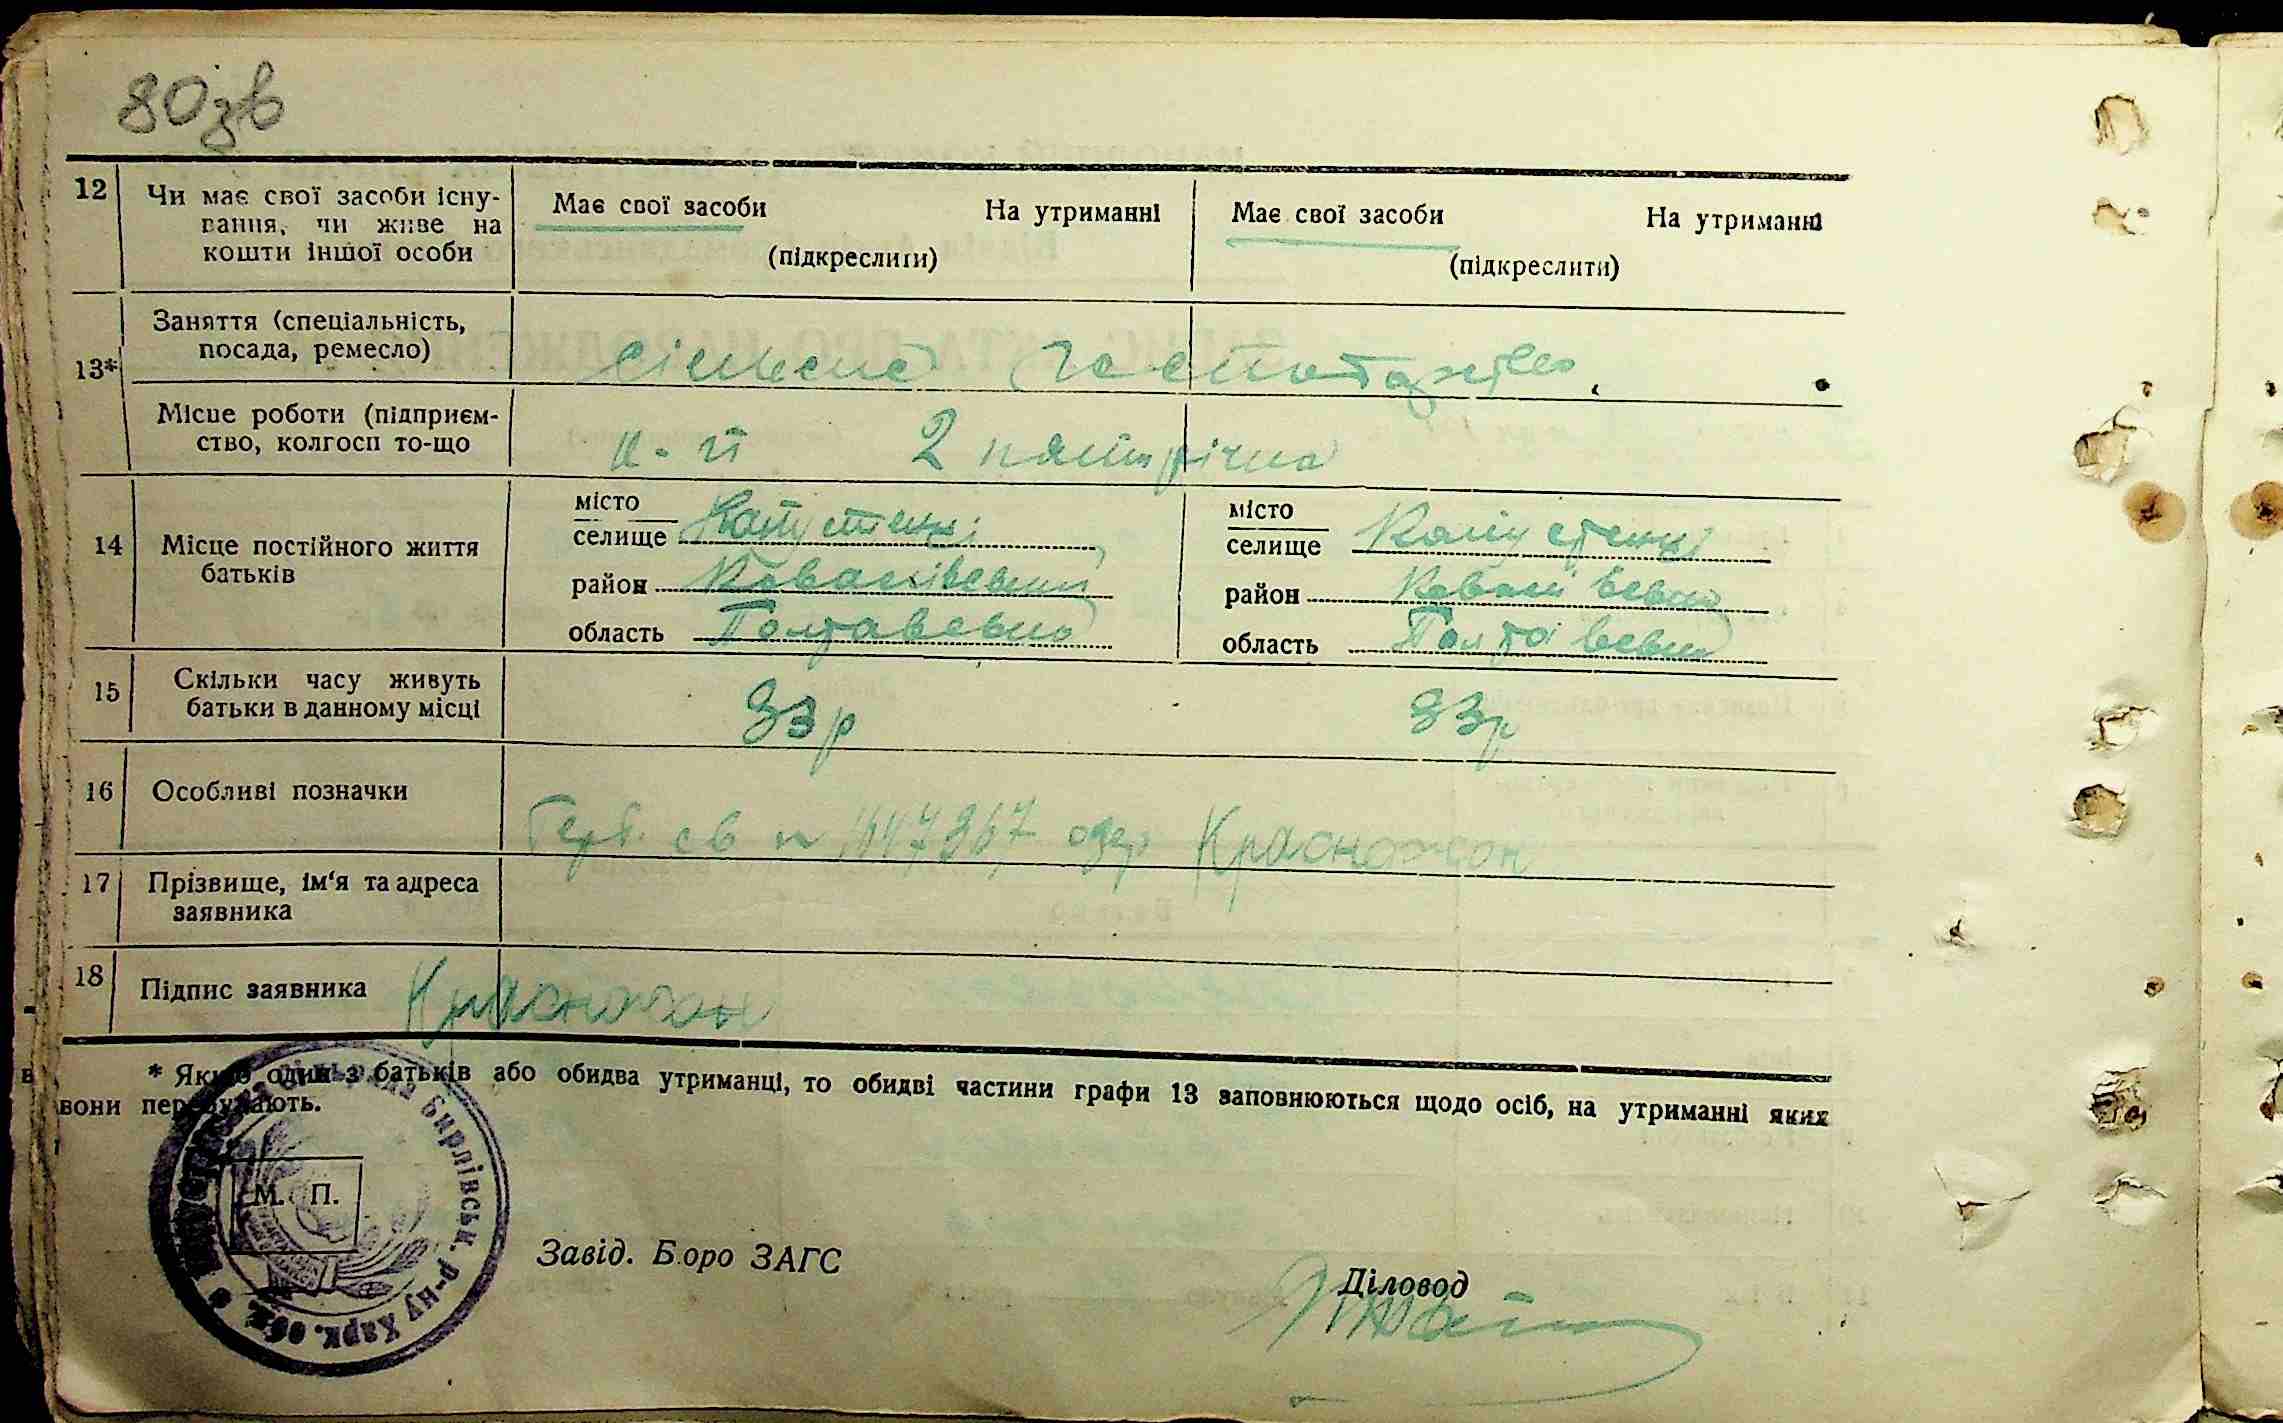 80зв
12 Чи має свої засоби існу-
вання, чи живе на
кошти іншої особи
Має свої засоби На утриманні
(підкреслити)
Має свої засоби На утриманні
(підкреслити)
13*
Заняття (спеціальність,
посада, ремесло)
сільське господарство
Місце роботи (підприєм-
ство, колгосп то-що
2 пятирічка
14 Місце постійного життя
батьків
місто
селище Капустенці
район Ковалівський
область Полтавський
місто
селище Капустенці
район Ковалівський
область Полтавський
15 Скільки часу живуть
батьки в данному місці
33р 33р
16 Особливі позначки
св одер Красножон
17 Прізвище, ім'я та адреса
заявника
18 Підпис заявника Красножон
* Якщо один з батьків або обидва утриманці, то обидві частини графи 13 заповнюються щодо осіб, на утриманні яких
вони перебувають.
М. П.
Бирлівськ. р-ну Харк. обл.
Завід. Бюро ЗАГС
Діловод